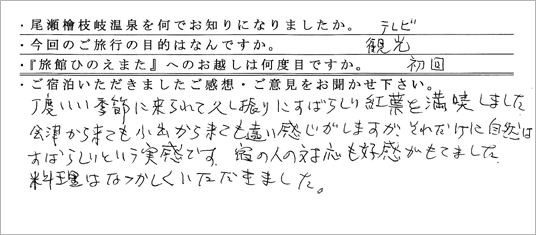 ・尾瀬檜枝岐温泉を何でお知りになりましたか。 テレビ
・今回のご旅行の目的はなんですか。 観光
・『旅館ひのえまた』へのお越しは何度目ですか。 初回
・ご宿泊いただきましたご感想・ご意見をお聞かせ下さい。
丁度いい季節に来られて久し振りにすばらしい紅葉を満喫しました
会津から来ても小出から来ても遠い感じがしますが、それだけに自然は
すばらしいという実感です。宿の人の対応も好感がもてました。
料理はなつかしくいただきました。